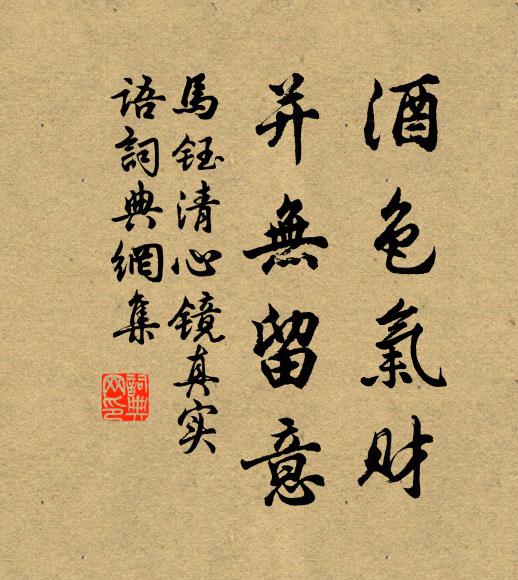 酒色氣財
并無留意
馬鈺清心镜真实
語詞典網集
詞典网印